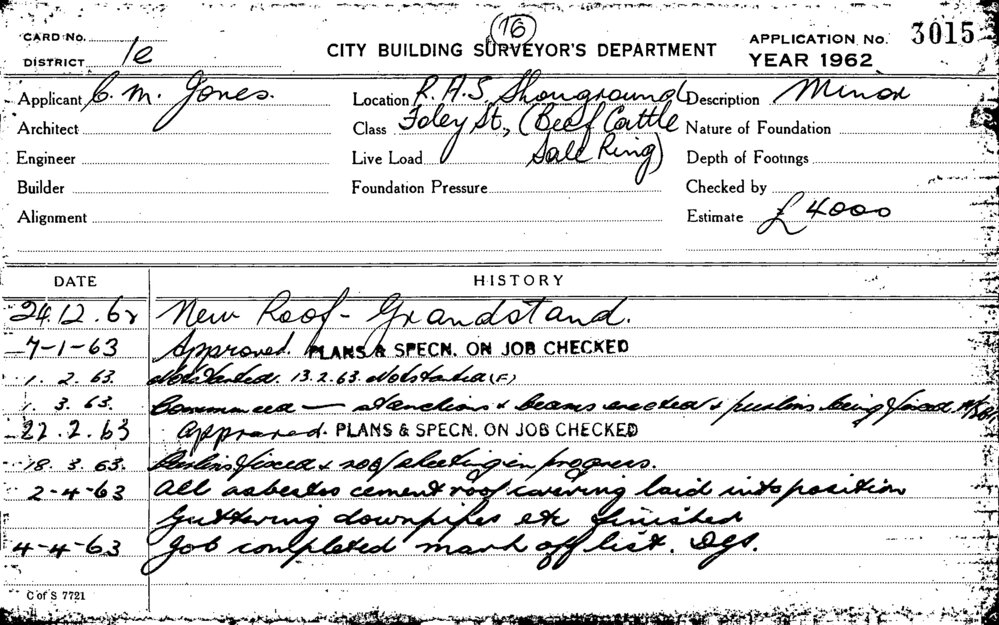 16
CARD No.
DISTRICT 1e
CITY BUILDING SURVEYOR'S DEPARTMENT
APPLICATION No. 3015
YEAR 1962
Applicant C. M. Jones. Location R.A.S. Showground Description Minor
Architect Class Foley St, (Beef Cattle Nature of Foundation
Engineer Live Load Sale Ring) Depth of Footings
Builder Foundation Pressure Checked by
Alignment Estimate £4000
DATE HISTORY
24.12.62 New Roof - Grandstand.
7-1-63 Approved. PLANS & SPECN. ON JOB CHECKED
1. 2. 63. Not started. 13.2.63. Not started (F)
1. 3. 63. Commenced — stanchions & beams erected & purlins being fixed
22.2.63 Approved. PLANS & SPECN. ON JOB CHECKED
18. 3. 63. Purlins fixed & roof sheeting in progress.
2-4-63 All asbestos cement roof covering laid into position
Guttering downpipes etc finished
4-4-63 Job completed mark off list. DGS.
C of S 7721